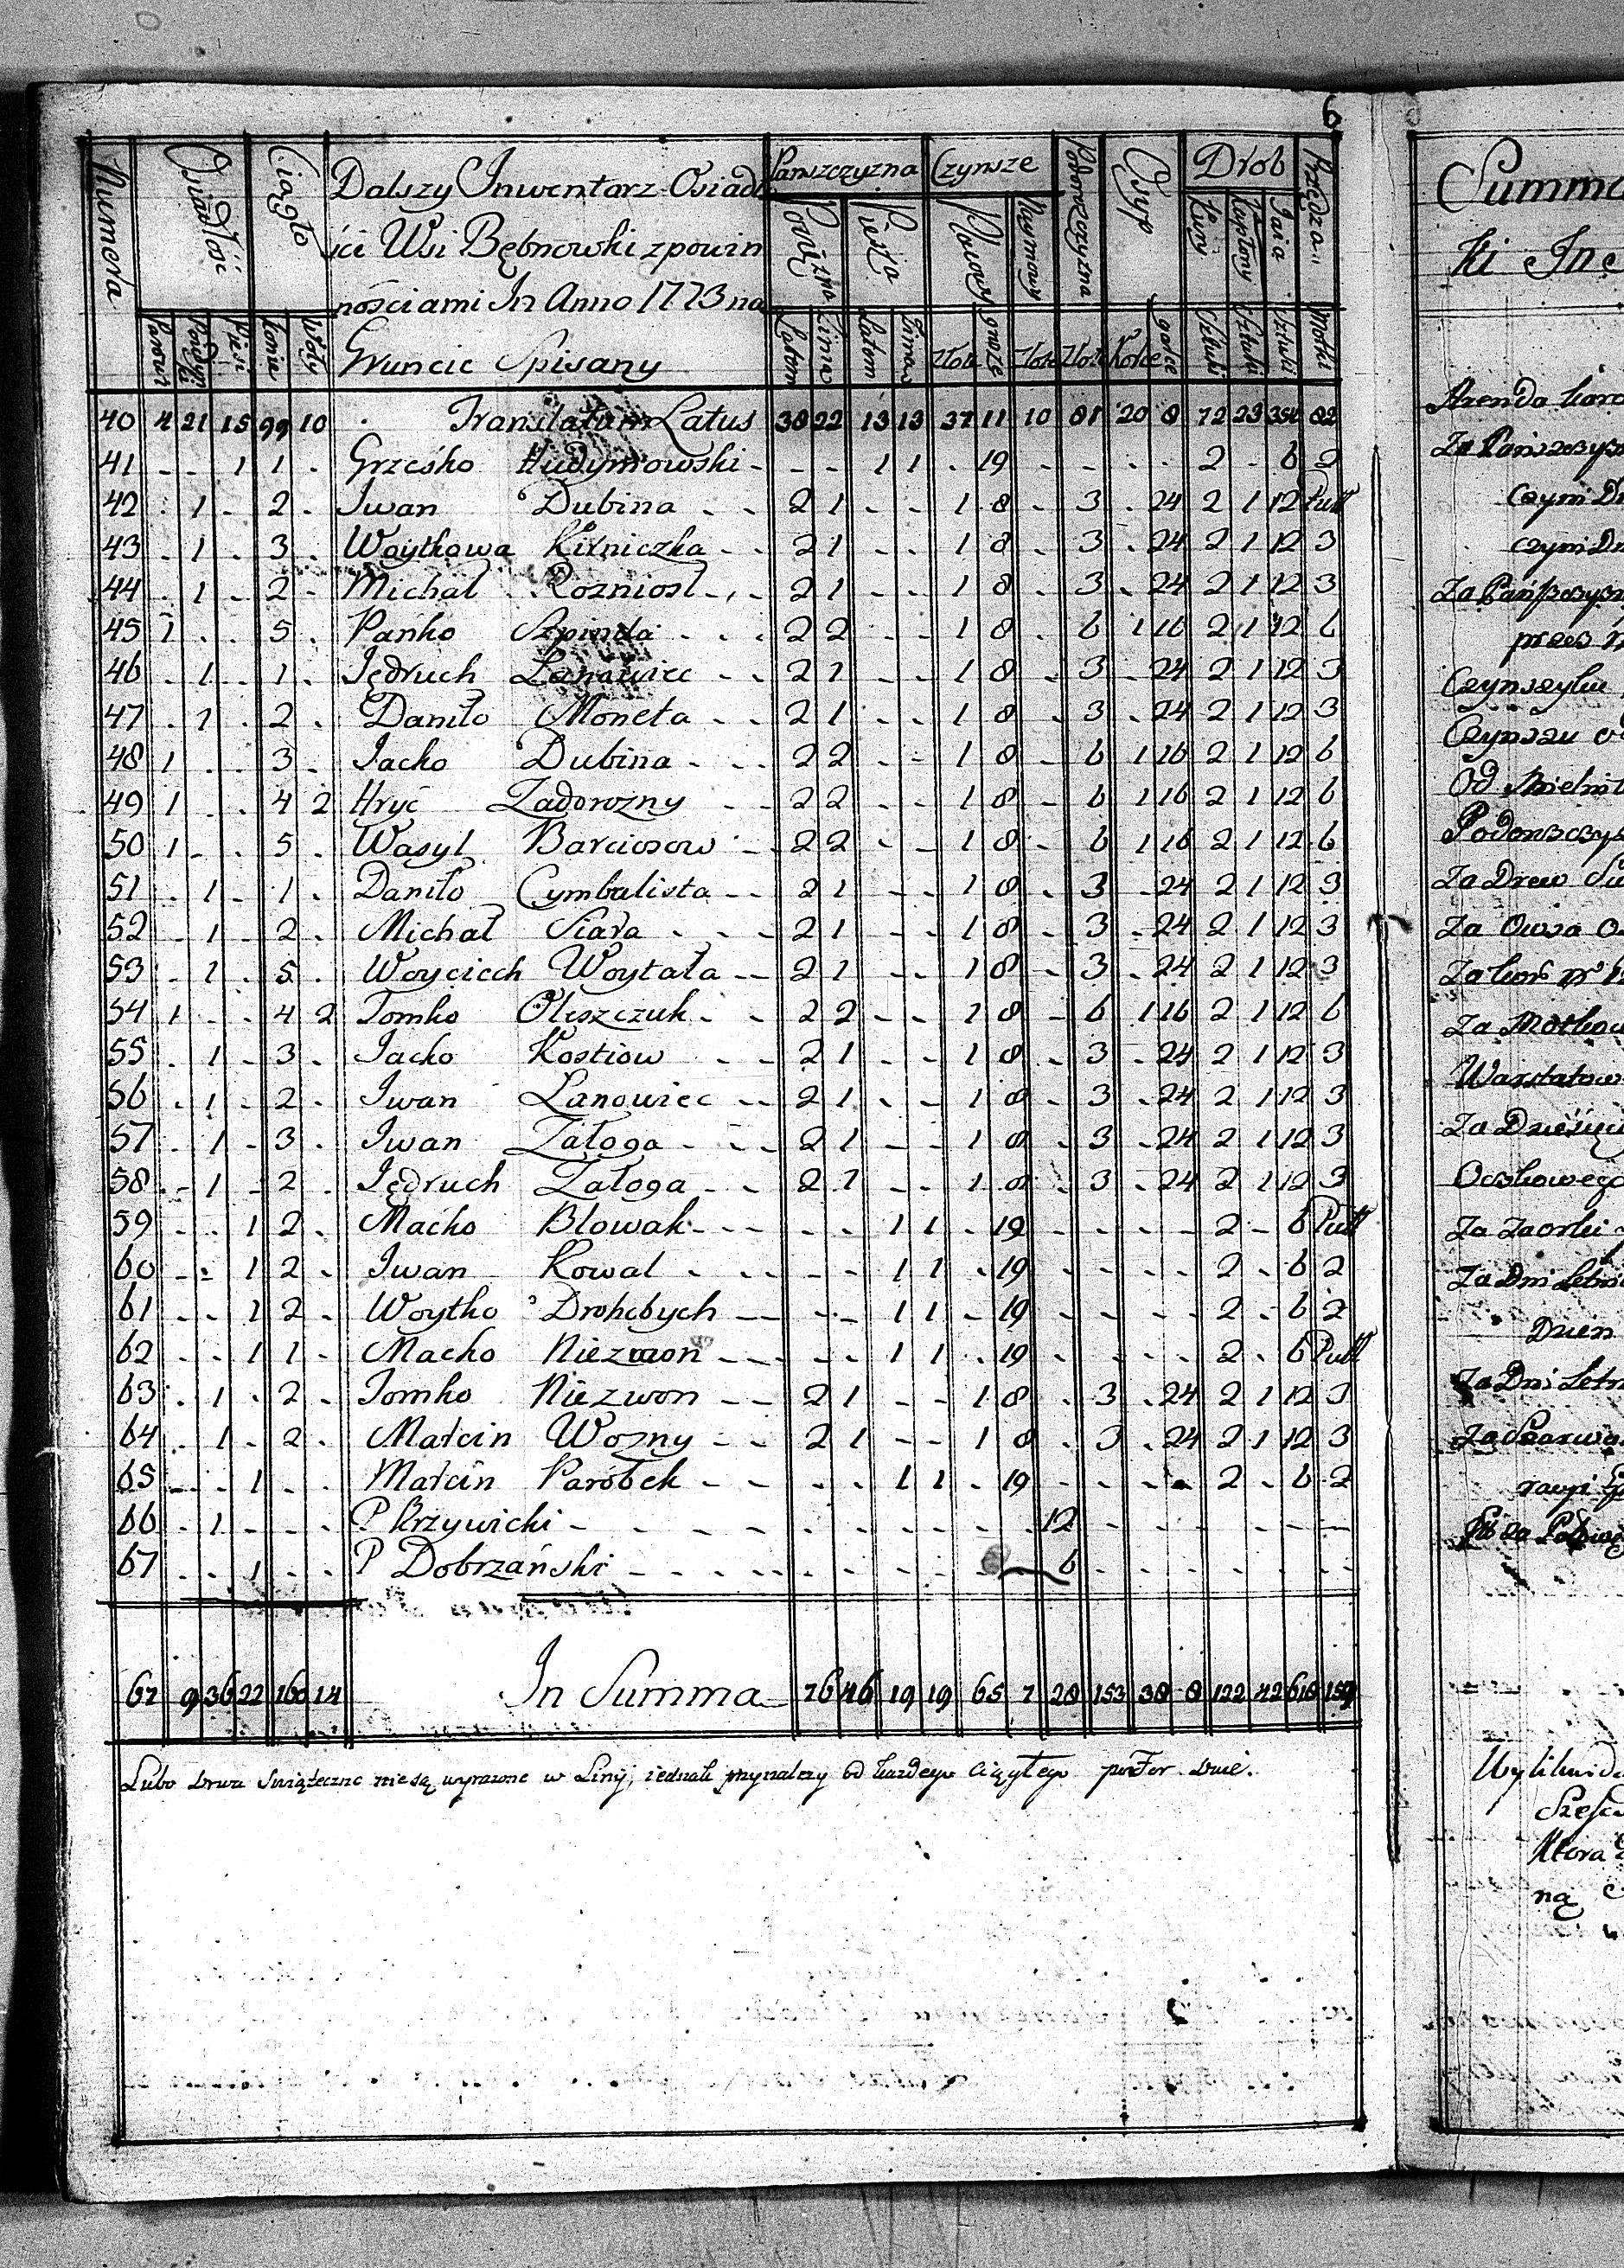 6
Numera Osiadłość Ciągło Dalszy Inwentarz Osiad Panszczyzna Czynsze Poboroszczyzna Osyp Drob Przędza
Pociężna Pieża Płacowy Naymowy Kury Kapłony Jaia
ści Wsi Bębnowski z powin
nościami In Anno 1773 na
Parowi Poiedyn Piesi Konie Woły Gruncie Spisany Latom Zima Latom Zima Złote grosze Złote Złote Korce garce Sztuki Sztuki Sztuki Motki
40 4 21 15 99 10 Translatum Latus 38 22 13 13 37 11 10 81 20 8 72 23 354 82
41 - - 1 1 - Grześko Hudymowski - - - 1 1 - 19 - - - - 2 - 6 2
42 - 1 - 2 - Iwan Dubina - - 2 1 - - 1 8 - 3 - 24 2 1 12 Pust
43 - 1 - 3 - Woytkowa Kirniczka - - 2 1 - - 1 8 - 3 - 24 2 1 12 3
44 - 1 - 2 - Michał Rozniosł - - 2 1 - - 1 8 - 3 - 24 2 1 12 3
45 1 - - 5 - Pańko - - 2 2 - - 1 8 - 6 1 16 2 1 12 6
46 - 1 - 1 - Jędruch Lanowiec - - 2 1 - - 1 8 - 3 - 24 2 1 12 3
47 - 1 - 2 - Daniło Moneta - - 2 1 - - 1 8 - 3 - 24 2 1 12 3
48 1 - - 3 - Jacko Dubina - - 2 2 - - 1 8 - 6 1 16 2 1 12 6
49 1 - - 4 2 Hryć Zadorozny - - 2 2 - - 1 8 - 6 1 16 2 1 12 6
50 1 - - 5 - Wasyl Barciosow - - 2 2 - - 1 8 - 6 1 16 2 1 12 6
51 - 1 - 1 - Daniło Cymbalista - - 2 1 - - 1 8 - 3 - 24 2 1 12 3
52 - 1 - 2 - Michał Siara - - 2 1 - - 1 8 - 3 - 24 2 1 12 3
53 - 1 - 5 - Woyciech Woytała - - 2 1 - - 1 8 - 3 - 24 2 1 12 3
54 1 - - 4 2 Tomko Oleszczuk - - 2 2 - - 1 8 - 6 1 16 2 1 12 6
55 - 1 - 3 - Jacko Kostiow - - 2 1 - - 1 8 - 3 - 24 2 1 12 3
56 - 1 - 2 - Iwan Lanowiec - - 2 1 - - 1 8 - 3 - 24 2 1 12 3
57 - 1 - 3 - Iwan Załoga - - 2 1 - - 1 8 - 3 - 24 2 1 12 3
58 - 1 - 2 - Jędruch Załoga - - 2 1 - - 1 8 - 3 - 24 2 1 12 3
59 - - 1 2 - Maćko Blowak - - - - 1 1 - 19 - - - - 2 - 6 Pust
60 - - 1 2 - Iwan Kowal - - - - 1 1 - 19 - - - - 2 - 6 2
61 - - 1 2 - Woytko Drohobych - - - - 1 1 - 19 - - - - 2 - 6 2
62 - - 1 1 - Maćko Niezwon - - - - 1 1 - 19 - - - - 2 - 6 Pust
63 - 1 - 2 - Tomko Niezwon - - 2 1 - - 1 8 - 3 - 24 2 1 12 3
64 - 1 - 2 - Marcin Wozny - - 2 1 - - 1 8 - 3 - 24 2 1 12 3
65 - - 1 - - Marcin Parobek - - - - 1 1 - 19 - - - - 2 - 6 2
66 - 1 - - - P Krzywicki - - - - - - - 12 - - - - - - -
67 - - 1 - - P Dobrzański - - - - - - - 6 - - - - - - -
67 9 36 22 160 14 In Summa 76 46 19 19 65 7 28 153 38 8 122 42 618 159
Lubo Drwa Swiąteczne nie są wyrazone w Linij, iednak przynalezy od kazdego Ciągłego po For. Dwie.
Summa
ki In
Arenda
Za Panszczyz
czym
czym
Za Pańszczyzn
przez
Czynszyku
Czynszu
Od
Za Drew
Za Owsa
Za
Za Motkow
Warstatow
Za Dziesięci
Za
Za Dni
Dzien
Za Dni Letn
Ktora
ną